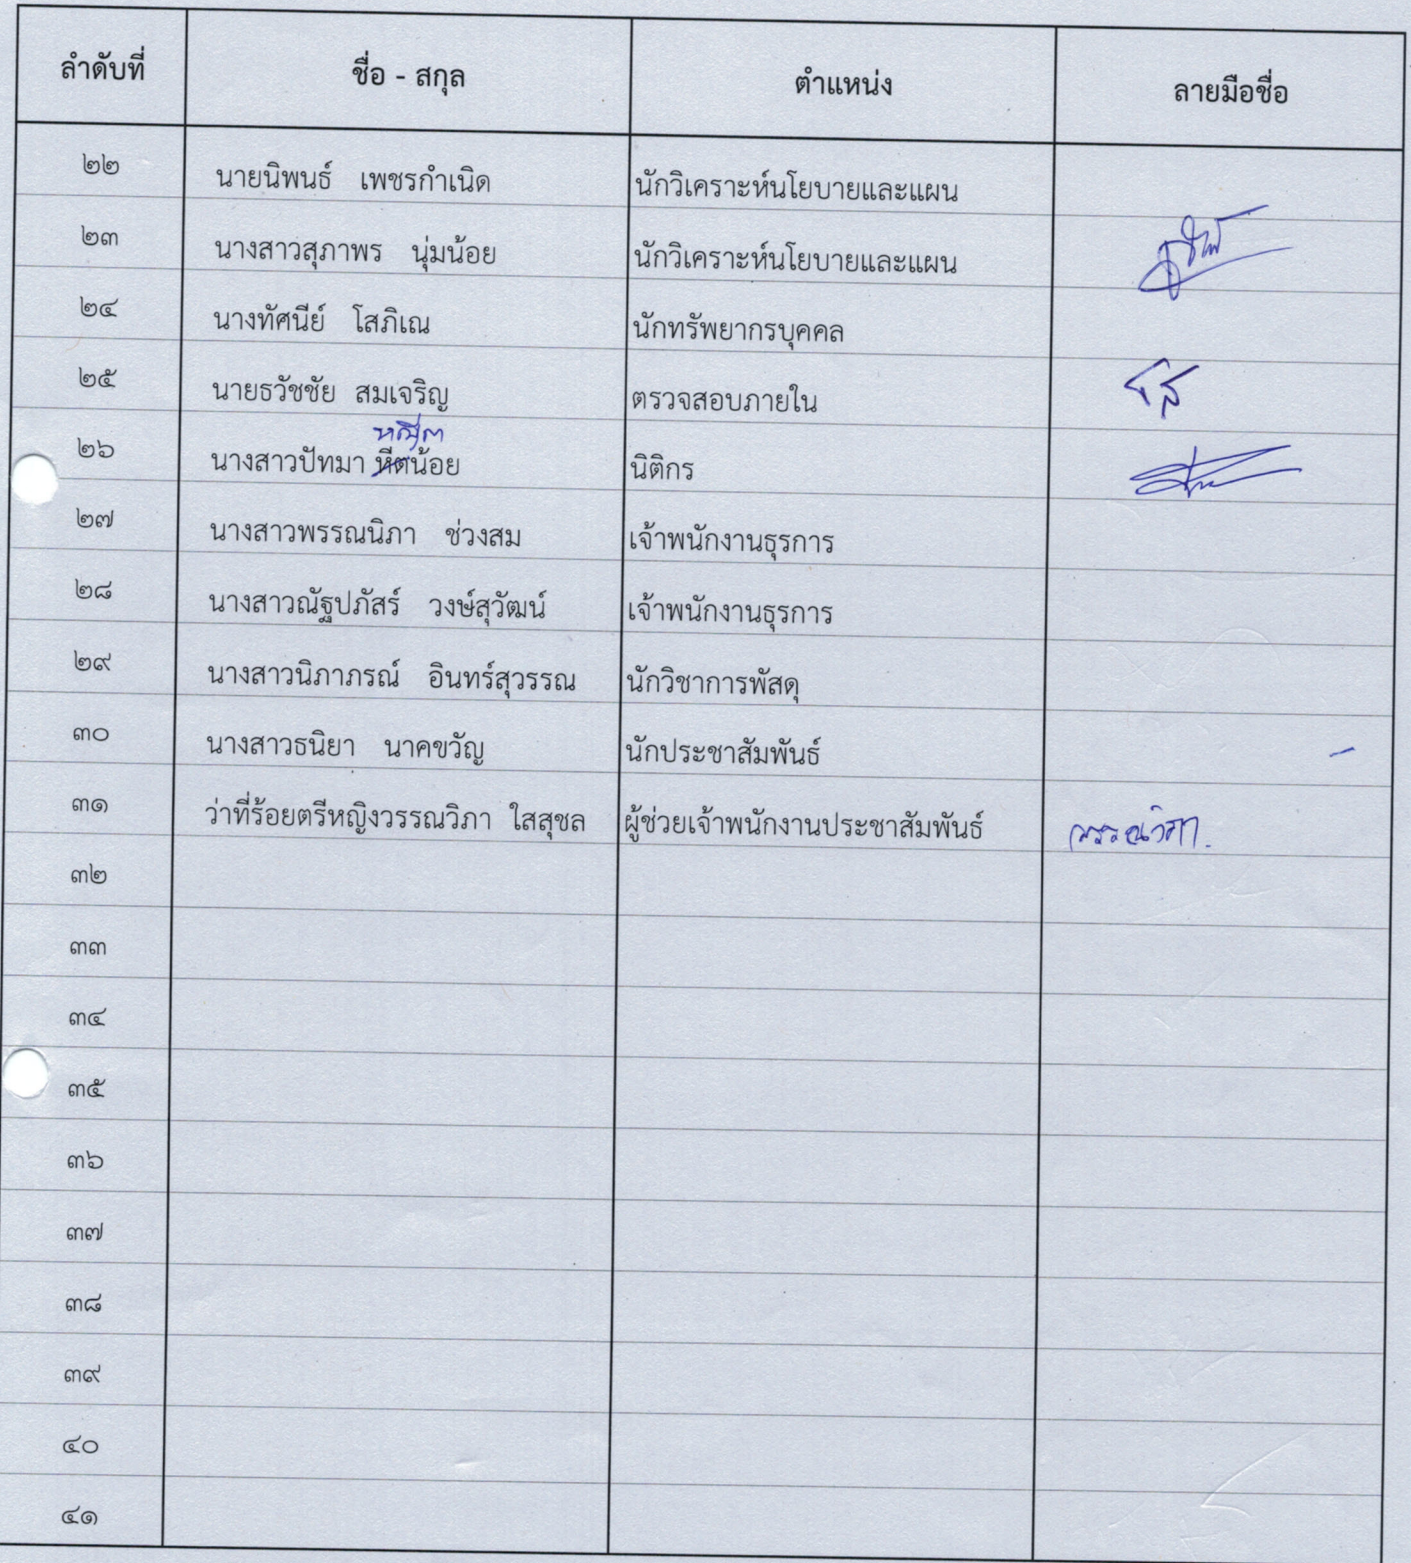 ลำดับที่ ชื่อ - สกุล ตำแหน่ง ลายมือชื่อ
๒๒ นายนิพนธ์ เพชรกำเนิด นักวิเคราะห์นโยบายและแผน
๒๓ นางสาวสุภาพร นุ่มน้อย นักวิเคราะห์นโยบายและแผน
๒๔ นางทัศนีย์ โสภิเณ นักทรัพยากรบุคคล
๒๕ นายธวัชชัย สมเจริญ ตรวจสอบภายใน
๒๖ นางสาวปัทมา หีตน้อย นิติกร
๒๗ นางสาวพรรณนิภา ช่วงสม เจ้าพนักงานธุรการ
๒๘ นางสาวณัฐปภัสร์ วงษ์สุวัฒน์ เจ้าพนักงานธุรการ
๒๙ นางสาวนิภาภรณ์ อินทร์สุวรรณ นักวิชาการพัสดุ
๓๐ นางสาวธนิยา นาคขวัญ นักประชาสัมพันธ์
๓๑ ว่าที่ร้อยตรีหญิงวรรณวิภา ใสสุชล ผู้ช่วยเจ้าพนักงานประชาสัมพันธ์ วรรณวิภา.
๓๒
๓๓
๓๔
๓๕
๓๖
๓๗
๓๘
๓๙
๔๐
๔๑